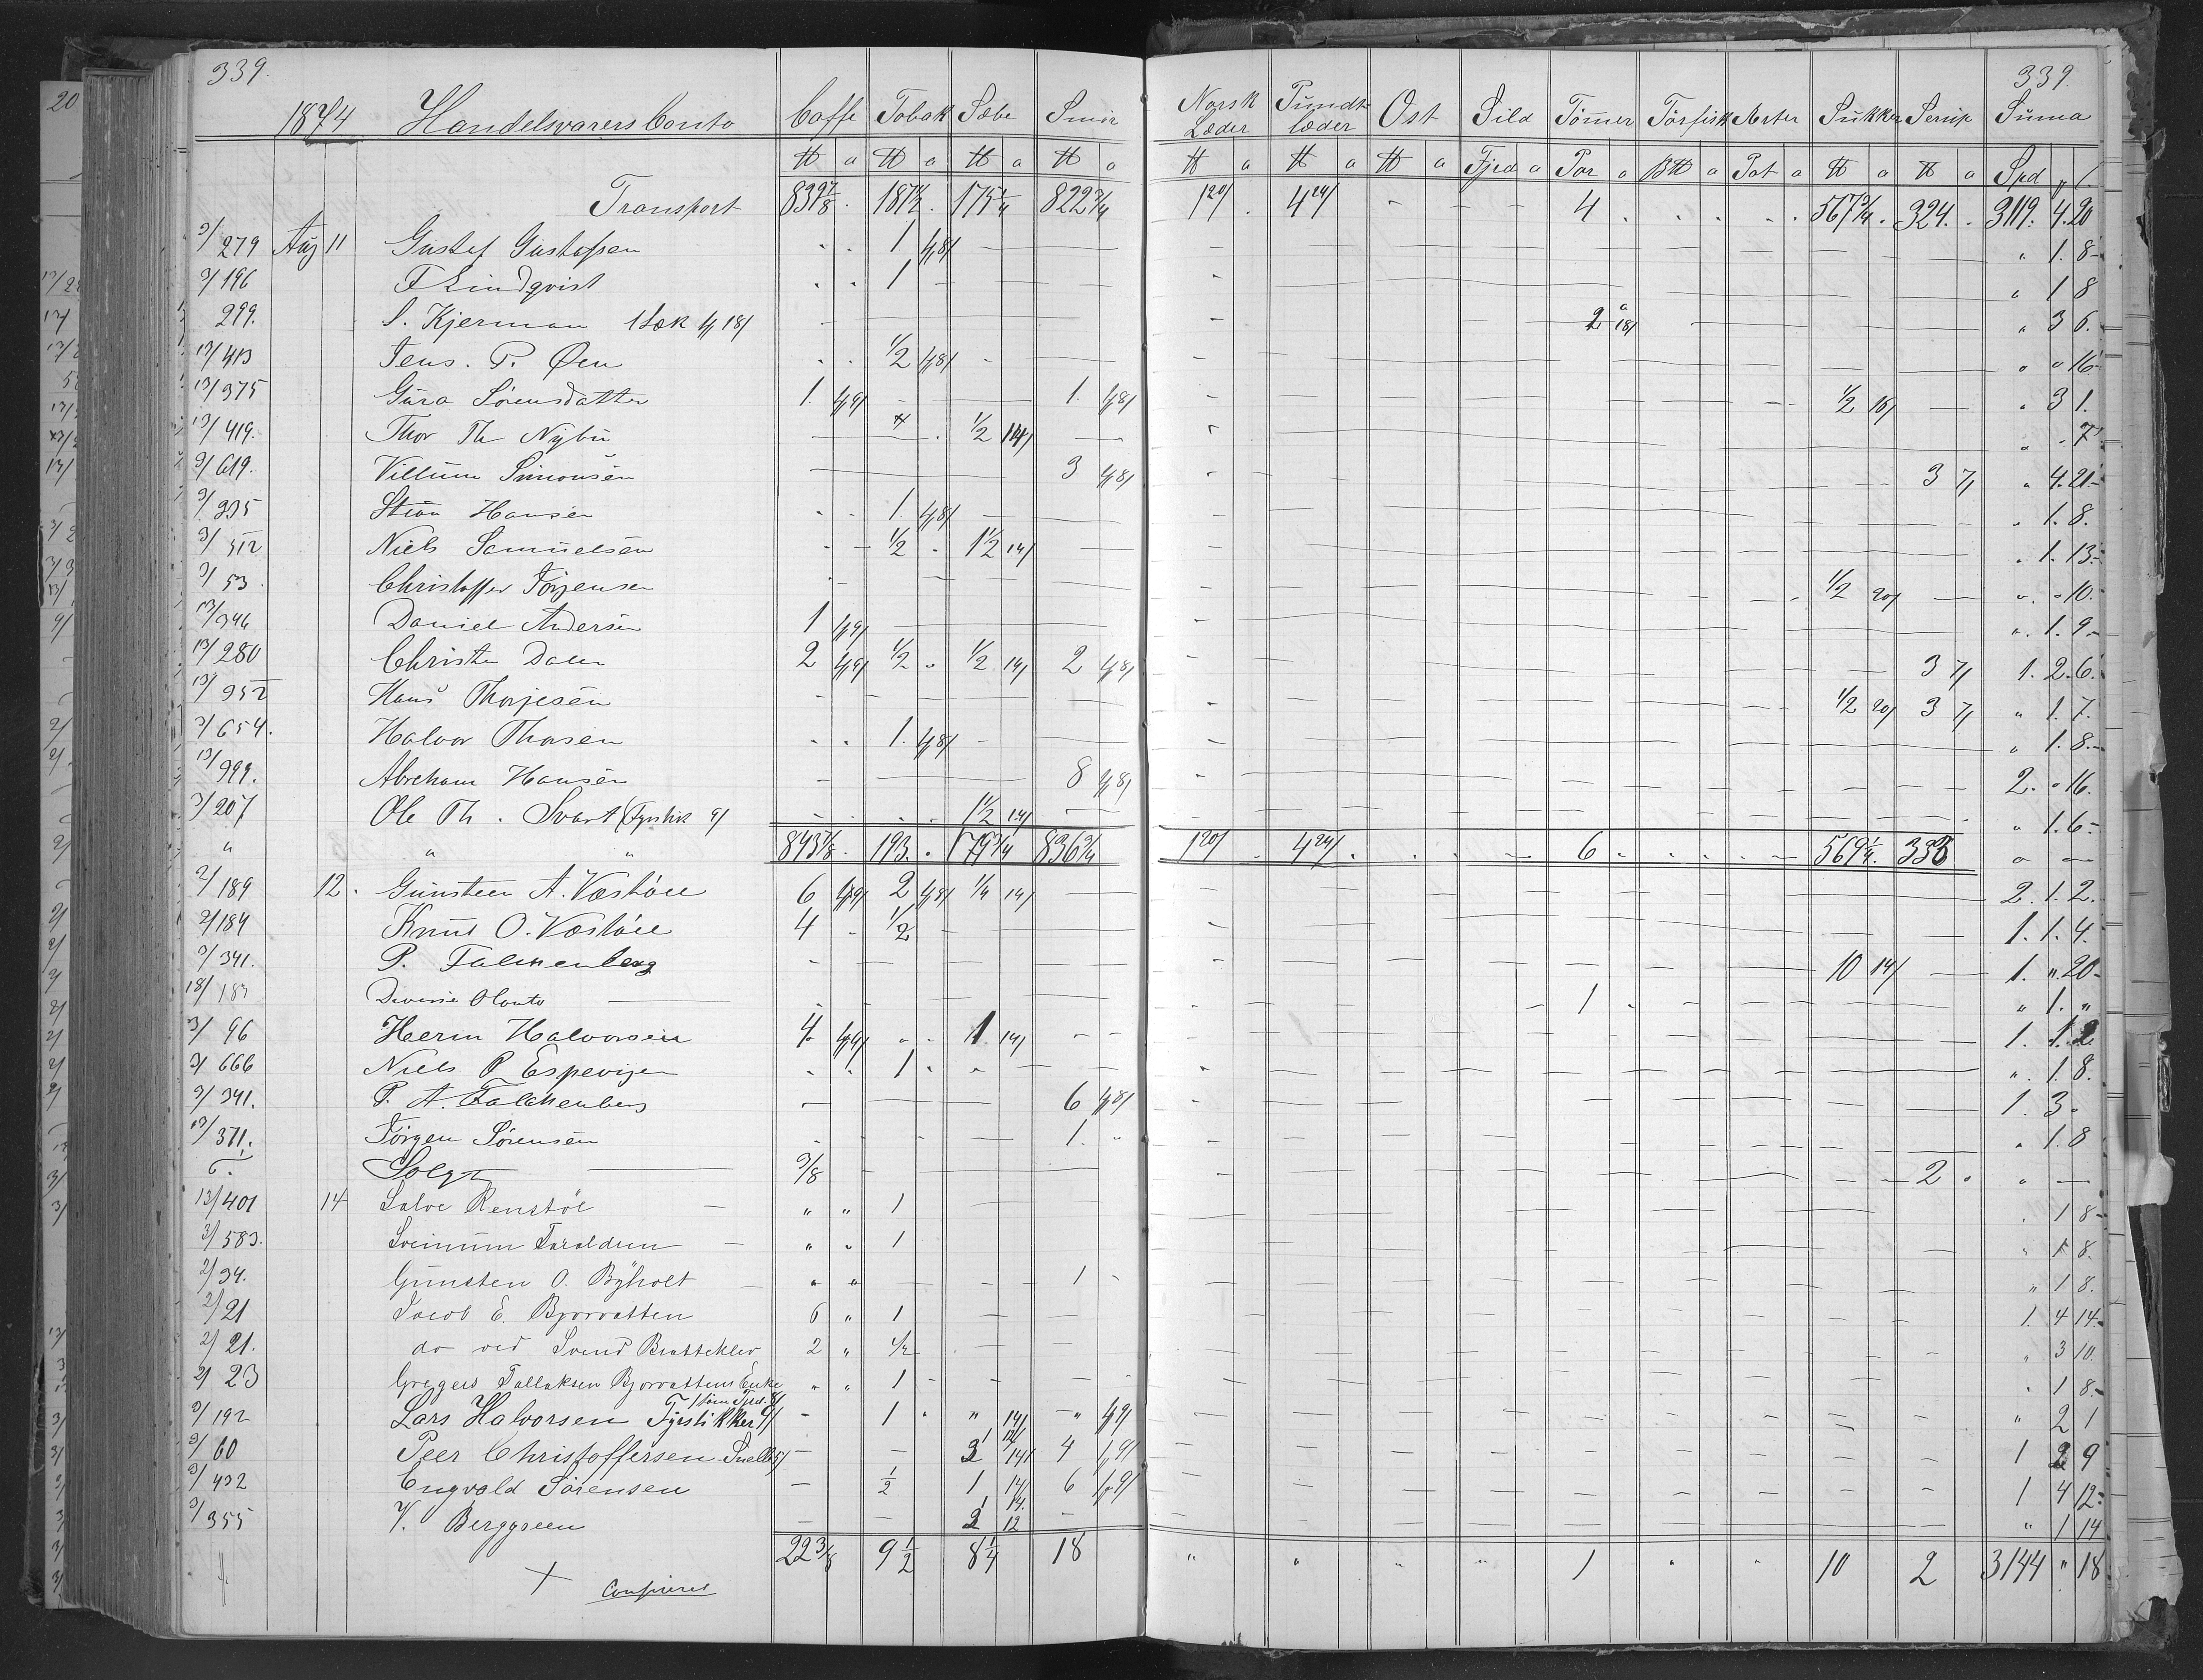 339. 339.
1874 Handelsvarers Conto Caffe Tobak Sæbe Smör Norsk Læder Pundt læder Ost Sild Tömer Törfisk Arter Sukker Serup Suma
℔ a ℔ a ℔ a ℔ a ℔ a ℔ a ℔ a Fjrd a Par a B℔ a Pot a ℔ a ℔ a Spd
Transport 839 7/8 . 187 1/2 . 175 1/4 822 3/4 1 20/ . 4 24/ - - - 4 . . . . . 567 3/4 . 324. . 3119. 4. 20
3/279 Aug 11 Gustef Gustafsen 1 1/8/ " 1. 8
3/196 F Lindqvist 1 " 1 8
299. S. Kjerman 1 Sæk 18/ 2 a 18/ " 3 6.
13/413 Jens. P. Øen 1/2 1/8/ " " 16
13/375 Gura Sörensdatter 1. 1/9/ 1. 1/8/ 1/2 18/ " 3 1.
13/419. Thor Th Nybu 1/2 14/ " . 7
3/619. Villum Simonsen 3 1/8/ 3 7/ " 4. 21.
3/395 Stian Hansen 1. 1/8/ " 1. 8.
3/512 Niels Samuelsen 1/2 . 1 1/2 14/ " 1. 13.
3/53. Christoffer Jörgensen 1/2 20/ " " 10.
13/346 Daniel Andersen 1 1/9/ " 1. 9.
13/280 Christen Dalen 2 1/9/ 1/2 " 1/2 14/ 2 1/8/ 3 7/ 1. 2. 6.
13/952 Hans Thorjesen 1/2 20/ 3 7/ " 1. 7.
3/654. Halvor Thorsen 1. 1/8/ " 1. 8.
13/999. Abreham Hansen 8 1/8/ 2. " 16.
3/207 Ole Th. Svart (Fyrstik 9/ 1 1/2 14/ " 1. 6.
" " " 843 7/8 . 193. . 179 3/4 836 3/4 1 20/ . 4 24/ . . . - 6 . . . . - 569 1/4 . 333 " -
2/189 12. Gunsteen A. Væstöll 6 1/9/ 2 1/8/ 1/4 14/ 2. 1. 2.
2/184 Knud O. Væstöll 4 - 1/2 1. 1. 4.
3/341. P. Falckenberg 10 14/ 1. " 20
18/183 Diverse Conto 1 " 1. "
3/96 Herm Halvorsen 4 1/9/ 1. 14/ 1. 1. 2
3/666 Niels P Espevigen 1 " 1. 8.
3/341. P. A. Falckenberg 6 1/8/ 1. 3 .
13/371. Jörgen Sörensen 1. " " 1. 8
Solgt 3/8 2 " " -
13/401 14 Salve Renstöl " " 1 " 1 8
3/583. Sveinum Taraldsen " " 1 " 1 8.
2/34. Gunsten O. Byholt " " 1 - " 1 8.
2/21 Jacob E. Bjorvatten 6 " 1 1. 4 14
2/21. do ved Svend Bratteklev 2 " 1/2 " 3 10.
2/23 Gregers Tallaksen Bjorvattens Enke " " 1 " 1 8
3/192 Lars Halvorsen Fyrstikker 9/ 1 " " 14/ " 1/9/ " 2 1
3/60 Peer Christoffersen Snelle 5/ 3 14/ 4 1/9/ 1 2 9
3/432 Engvald Sörensen 1/2 1 14/ 6 1/9/ 1 4 12
3/355 V. Berggreen 2 12 " 1 14
22 3/8 9 1/2 8 1/4 18 " " " " 1 " " 10 2 3144 " 18
+ Confereret